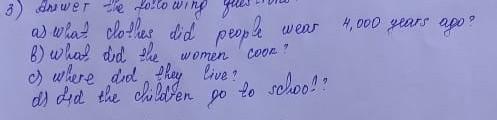 3) Answer the following questions
a) what clothes did people wear 4,000 years ago?
b) what did the women cook?
c) where did they live?
d) did the children go to school?